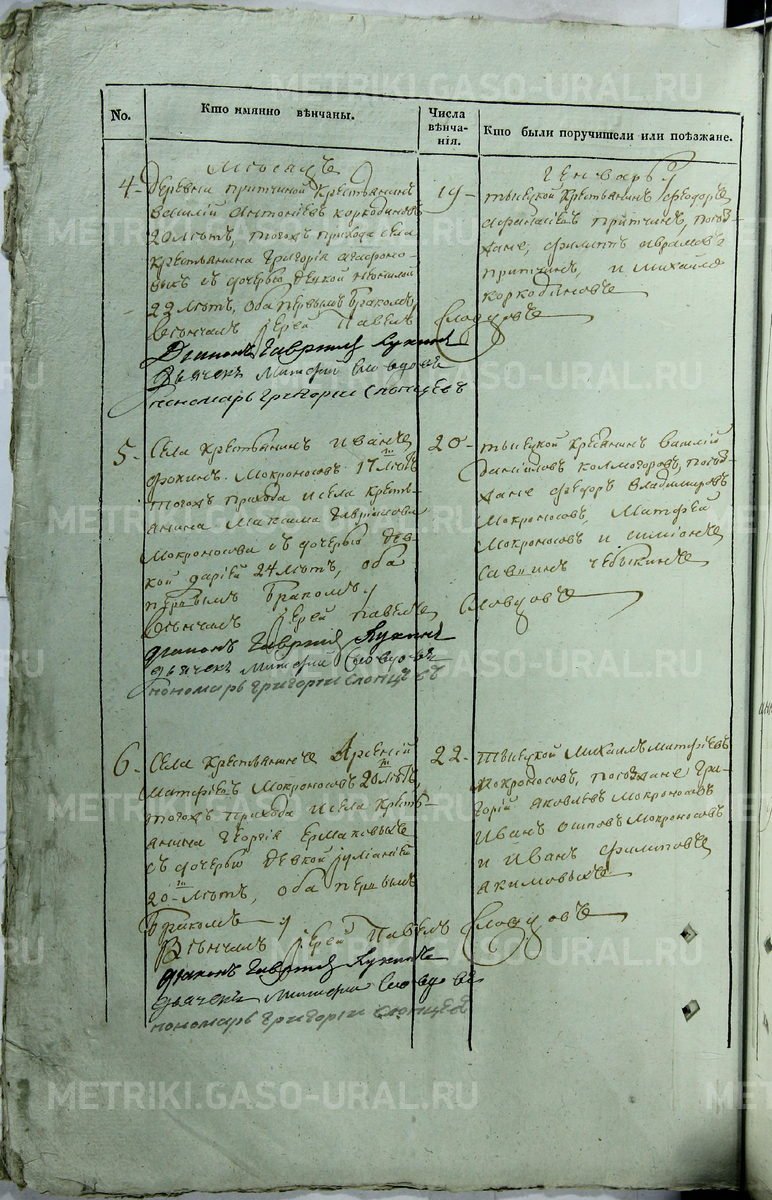 METRIKI.GASO-URAL.RU
No.
Кто имянно вѣнчаны.
Числа вѣнчанія.
Кто были поручители или поѣзжане.
Мѣсяцъ
Генварь
4
деревни Притчиной крестьянинъ
Василій Антоніевъ Коркодиновъ
20 лѣтъ, тогожъ прихода села
крестьянина Григорія Агафоно-
выхъ съ дочерью девкой
22 лѣтъ, оба первымъ бракомъ
Венчалъ іерей Павелъ Словцовъ
Диаконъ Гавриилъ Лукинъ
Дьячекъ Матфей Словцовъ
пономарь Григории Слопцевъ
19
тысяцкой крестьянинъ Феодоръ
Афанасіевъ Притчинъ, поез-
жане, Филиппъ Аврамовъ
Притчинъ, и Михайло
Коркодиновъ
5
Села крестьянинъ Иванъ
Фокинъ Мокроносовъ 17 лѣтъ
тогожъ прихода и села кресть-
янина Максима Гаврилова
Мокроносова съ дочерью дев-
кой Даріей 24 лѣтъ, оба
первымъ бракомъ
Венчалъ іерей Павелъ Словцовъ
диаконъ Гавриилъ Лукинъ
дьячекъ Матфей Словцовъ
пономарь Григории Слопцевъ
20
тысяцкой крестьянинъ Василій
Даніиловъ Колмогоровъ, поез-
жане Феодоръ Владимировъ
Мокроносовъ, Матфей
Мокроносовъ и Симіонъ
Саввинъ Чебыкинъ
6
Села крестьянинъ Арсеній
Матфеевъ Мокроносовъ 20 лѣтъ,
тогожъ прихода и села кресть-
янина Георгія Ермаковыхъ
съ дочерью девкой Іуліаніей
20 лѣтъ, оба первымъ
бракомъ
Венчалъ іерей Павелъ Словцовъ
диаконъ Гавриилъ Лукинъ
дьячекъ Матфей Словцовъ
пономарь Григории Слопцевъ
22
тысяцкой Михаилъ Матфеевъ
Мокроносовъ, поезжане Гри-
горій Яковлевъ Мокроносовъ
Иванъ Осиповъ Мокроносовъ
и Иванъ Филиповъ
Акимовыхъ